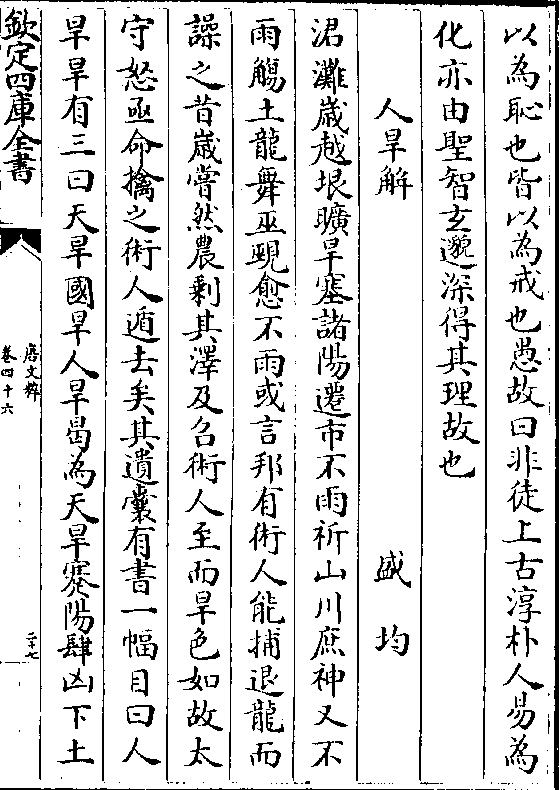 以為恥也皆以為戒也愚故曰非徒上古淳朴人易為
化亦由聖智玄邈深得其理故也
人旱解 盛均
涒灘歲越垠曠旱塞諸陽遷市不雨祈山川庶神又不
雨觴土龍舞巫覡愈不雨或言邦有術人能捕退龍而
譟之昔歲嘗然農剩其澤及召術人至而旱色如故太
守怒亟命擒之術人遁去矣其遺囊有書一幅目曰人
旱旱有三曰天旱國旱人旱曷為天旱寋陽肆凶下土
欽定四庫全書
唐文粹
卷四十六
二十七